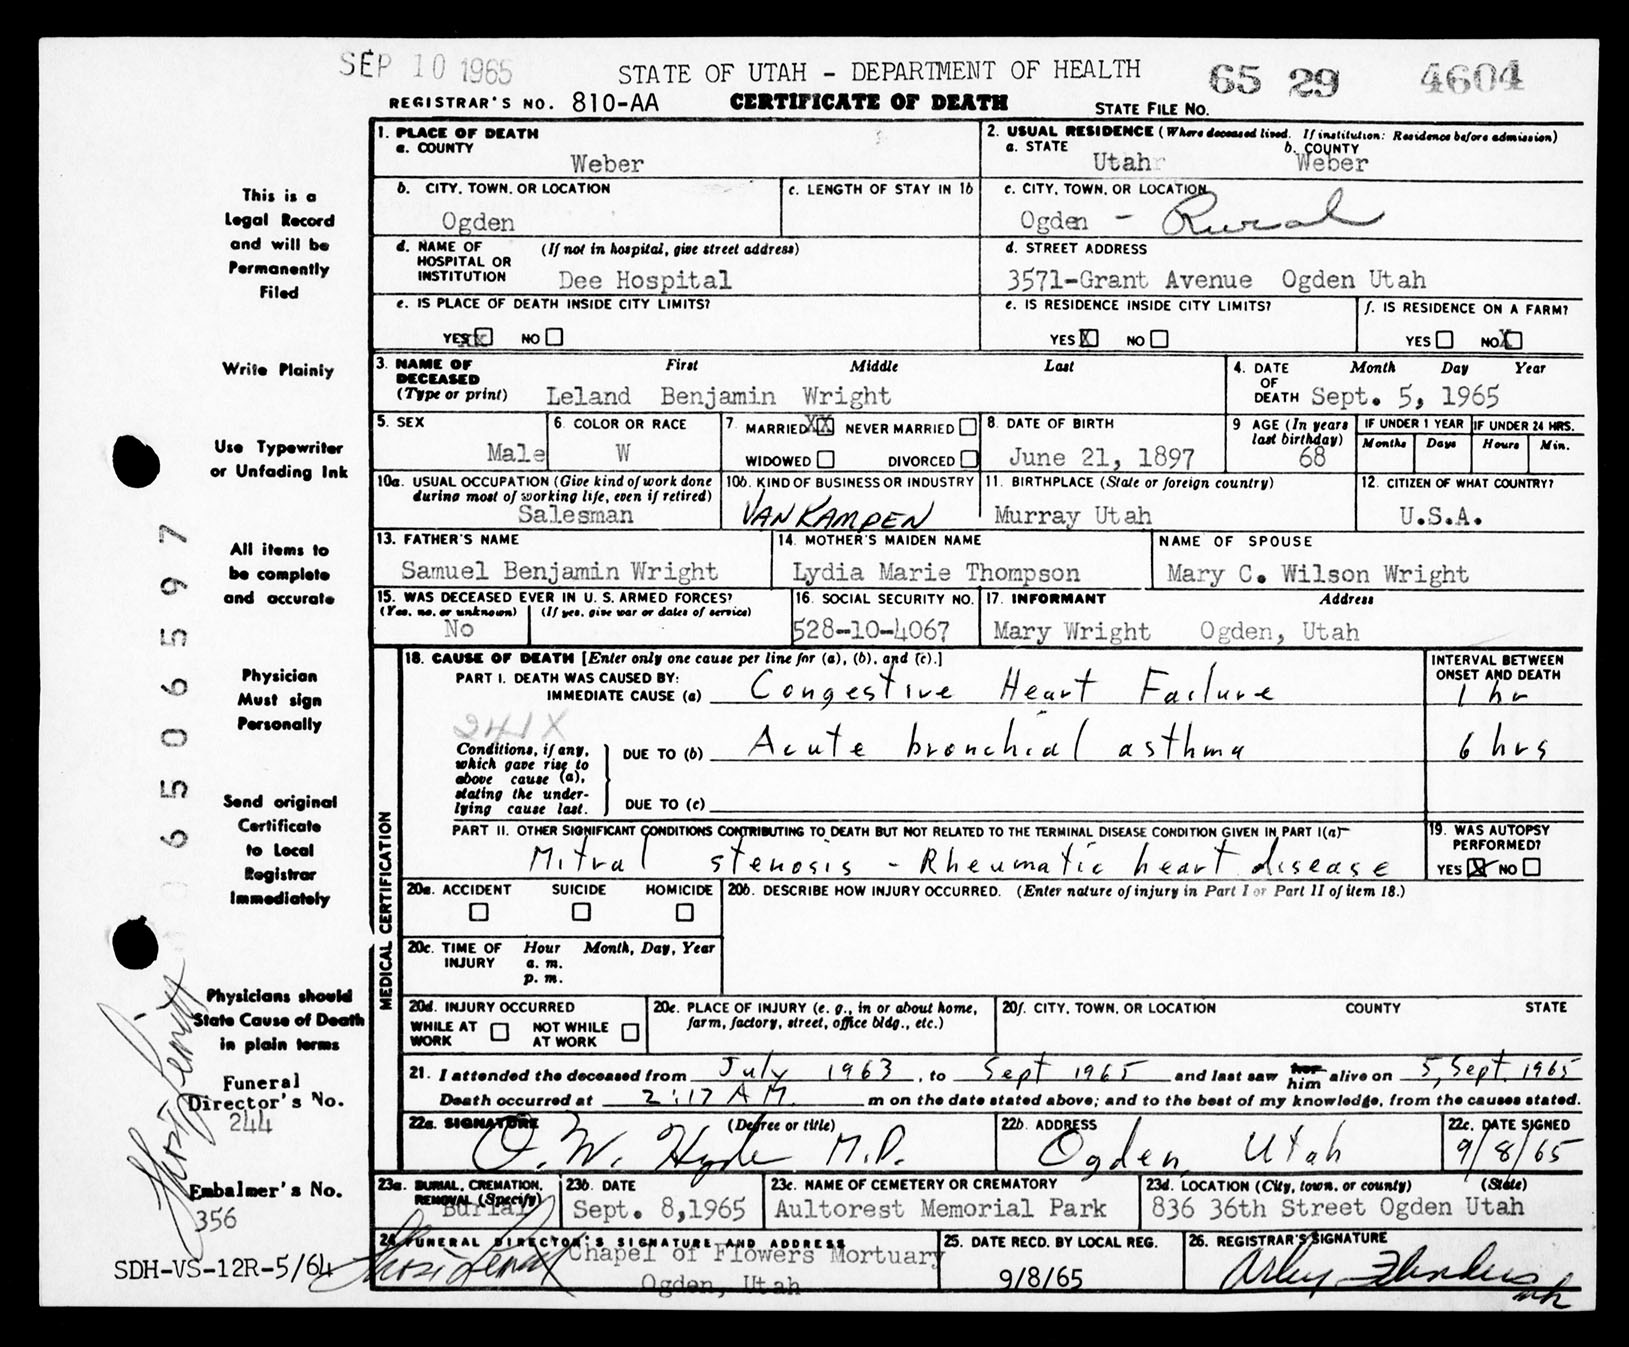 SEP 10 1965
STATE OF UTAH - DEPARTMENT OF HEALTH
65 29 4604
REGISTRAR'S NO. 810-AA
CERTIFICATE OF DEATH
STATE FILE NO.
1. PLACE OF DEATH
a. COUNTY
Weber
2. USUAL RESIDENCE (Where deceased lived. If institution: Residence before admission)
a. STATE
b. COUNTY
Utah
Weber
b. CITY, TOWN, OR LOCATION
Ogden
c. LENGTH OF STAY IN 1b
c. CITY, TOWN, OR LOCATION
Ogden - Rural
d. NAME OF HOSPITAL OR INSTITUTION
(If not in hospital, give street address)
Dee Hospital
d. STREET ADDRESS
3571-Grant Avenue Ogden Utah
e. IS PLACE OF DEATH INSIDE CITY LIMITS?
YES XX NO
e. IS RESIDENCE INSIDE CITY LIMITS?
YES X NO
f. IS RESIDENCE ON A FARM?
YES NO X
3. NAME OF DECEASED
(Type or print)
First Middle Last
Leland Benjamin Wright
4. DATE OF DEATH
Month Day Year
Sept. 5, 1965
5. SEX
Male
6. COLOR OR RACE
W
7. MARRIED XX NEVER MARRIED
WIDOWED DIVORCED
8. DATE OF BIRTH
June 21, 1897
9 AGE (In years last birthday)
68
IF UNDER 1 YEAR
Months Days
IF UNDER 24 HRS.
Hours Min.
10a. USUAL OCCUPATION (Give kind of work done during most of working life, even if retired)
Salesman
10b. KIND OF BUSINESS OR INDUSTRY
VAN KAMPEN
11. BIRTHPLACE (State or foreign country)
Murray Utah
12. CITIZEN OF WHAT COUNTRY?
U.S.A.
13. FATHER'S NAME
Samuel Benjamin Wright
14. MOTHER'S MAIDEN NAME
Lydia Marie Thompson
NAME OF SPOUSE
Mary C. Wilson Wright
15. WAS DECEASED EVER IN U. S. ARMED FORCES?
(Yes, no, or unknown) (If yes, give war or dates of service)
No
16. SOCIAL SECURITY NO.
528-10-4067
17. INFORMANT Address
Mary Wright Ogden, Utah
MEDICAL CERTIFICATION
18. CAUSE OF DEATH [Enter only one cause per line for (a), (b), and (c).]
PART I. DEATH WAS CAUSED BY:
IMMEDIATE CAUSE (a) Congestive Heart Failure
INTERVAL BETWEEN ONSET AND DEATH
1 hr
241X
Conditions, if any, which gave rise to above cause (a), stating the underlying cause last.
DUE TO (b) Acute bronchial asthma
6 hrs
DUE TO (c)
PART II. OTHER SIGNIFICANT CONDITIONS CONTRIBUTING TO DEATH BUT NOT RELATED TO THE TERMINAL DISEASE CONDITION GIVEN IN PART I(a)
Mitral stenosis - Rheumatic heart disease
19. WAS AUTOPSY PERFORMED?
YES X NO
20a. ACCIDENT SUICIDE HOMICIDE
20b. DESCRIBE HOW INJURY OCCURRED. (Enter nature of injury in Part I or Part II of item 18.)
20c. TIME OF INJURY
Hour Month, Day, Year
a. m.
p. m.
20d. INJURY OCCURRED
WHILE AT WORK NOT WHILE AT WORK
20e. PLACE OF INJURY (e. g., in or about home, farm, factory, street, office bldg., etc.)
20f. CITY, TOWN, OR LOCATION COUNTY STATE
21. I attended the deceased from July 1963, to Sept 1965 and last saw her him alive on 5, Sept. 1965
Death occurred at 2:17 A M. m on the date stated above; and to the best of my knowledge, from the causes stated.
22a. SIGNATURE (Degree or title)
O. W. Hyde M.D.
22b. ADDRESS
Ogden, Utah
22c. DATE SIGNED
9/8/65
23a. BURIAL, CREMATION, REMOVAL (Specify)
Burial
23b. DATE
Sept. 8,1965
23c. NAME OF CEMETERY OR CREMATORY
Aultorest Memorial Park
23d. LOCATION (City, town, or county) (State)
836 36th Street Ogden Utah
24 FUNERAL DIRECTOR'S SIGNATURE AND ADDRESS
Chapel of Flowers Mortuary
Ogden, Utah
25. DATE RECD. BY LOCAL REG.
9/8/65
26. REGISTRAR'S SIGNATURE
This is a
Legal Record
and will be
Permanently
Filed
Write Plainly
Use Typewriter
or Unfading Ink
All items to
be complete
and accurate
Physician
Must sign
Personally
Send original
Certificate
to Local
Registrar
Immediately
Physicians should
State Cause of Death
in plain terms
Funeral
Director's No.
244
Embalmer's No.
356
SDH-VS-12R-5/64
6506597